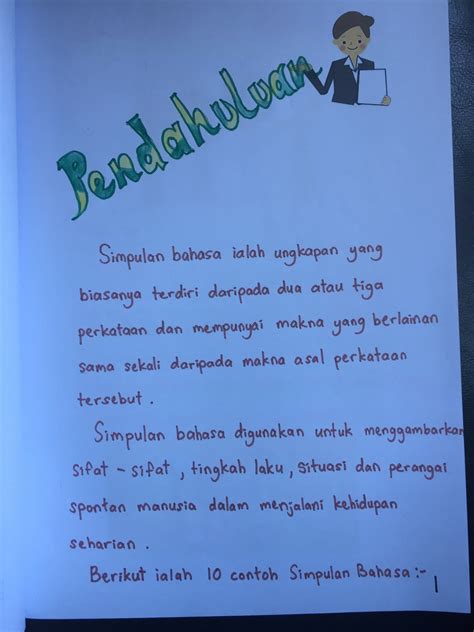 Pendahuluan
Simpulan bahasa ialah ungkapan yang
biasanya terdiri daripada dua atau tiga
perkataan dan mempunyai makna yang berlainan
sama sekali daripada makna asal perkataan
tersebut .
Simpulan bahasa digunakan untuk menggambarkan
sifat - sifat , tingkah laku , situasi dan perangai
spontan manusia dalam menjalani kehidupan
seharian .
Berikut ialah 10 contoh Simpulan Bahasa :-
1